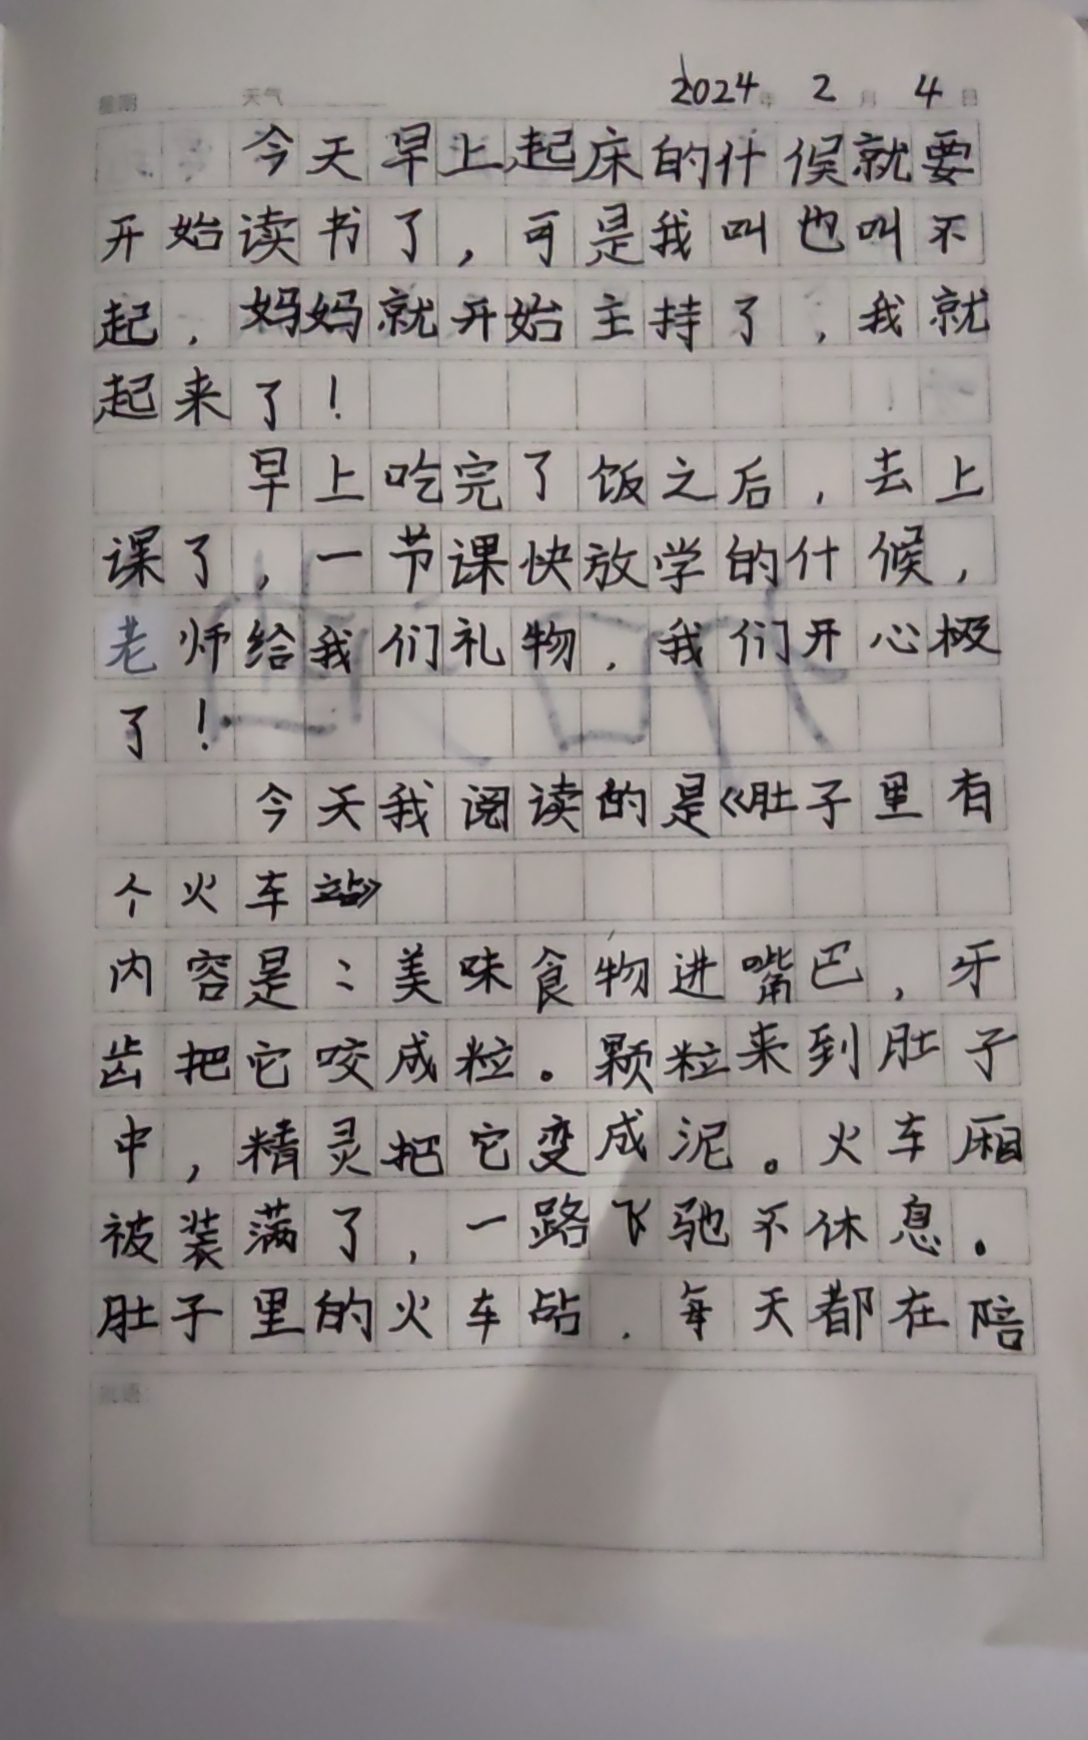 星期 天气 2024年 2月 4日
今天早上起床的什候就要
开始读书了，可是我叫也叫不
起，妈妈就开始主持了，我就
起来了！
早上吃完了饭之后，去上
课了，一节课快放学的什候，
老师给我们礼物，我们开心极
了！
今天我阅读的是《肚子里有
个火车站》
内容是：美味食物进嘴巴，牙
齿把它咬成粒。颗粒来到肚子
中，精灵把它变成泥。火车厢
被装满了，一路飞驰不休息。
肚子里的火车站，每天都在陪